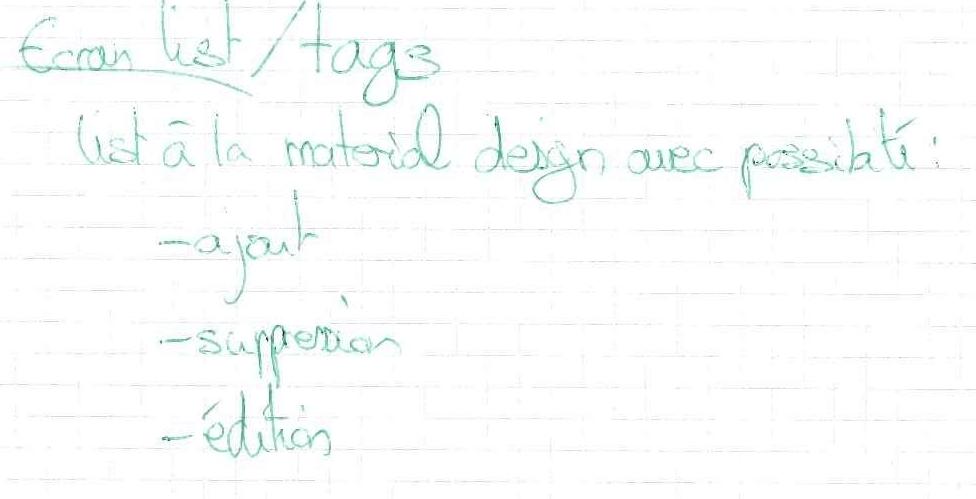 Ecran list/tags
list à la material design avec possibilité :
- ajout
- suppression
- édition